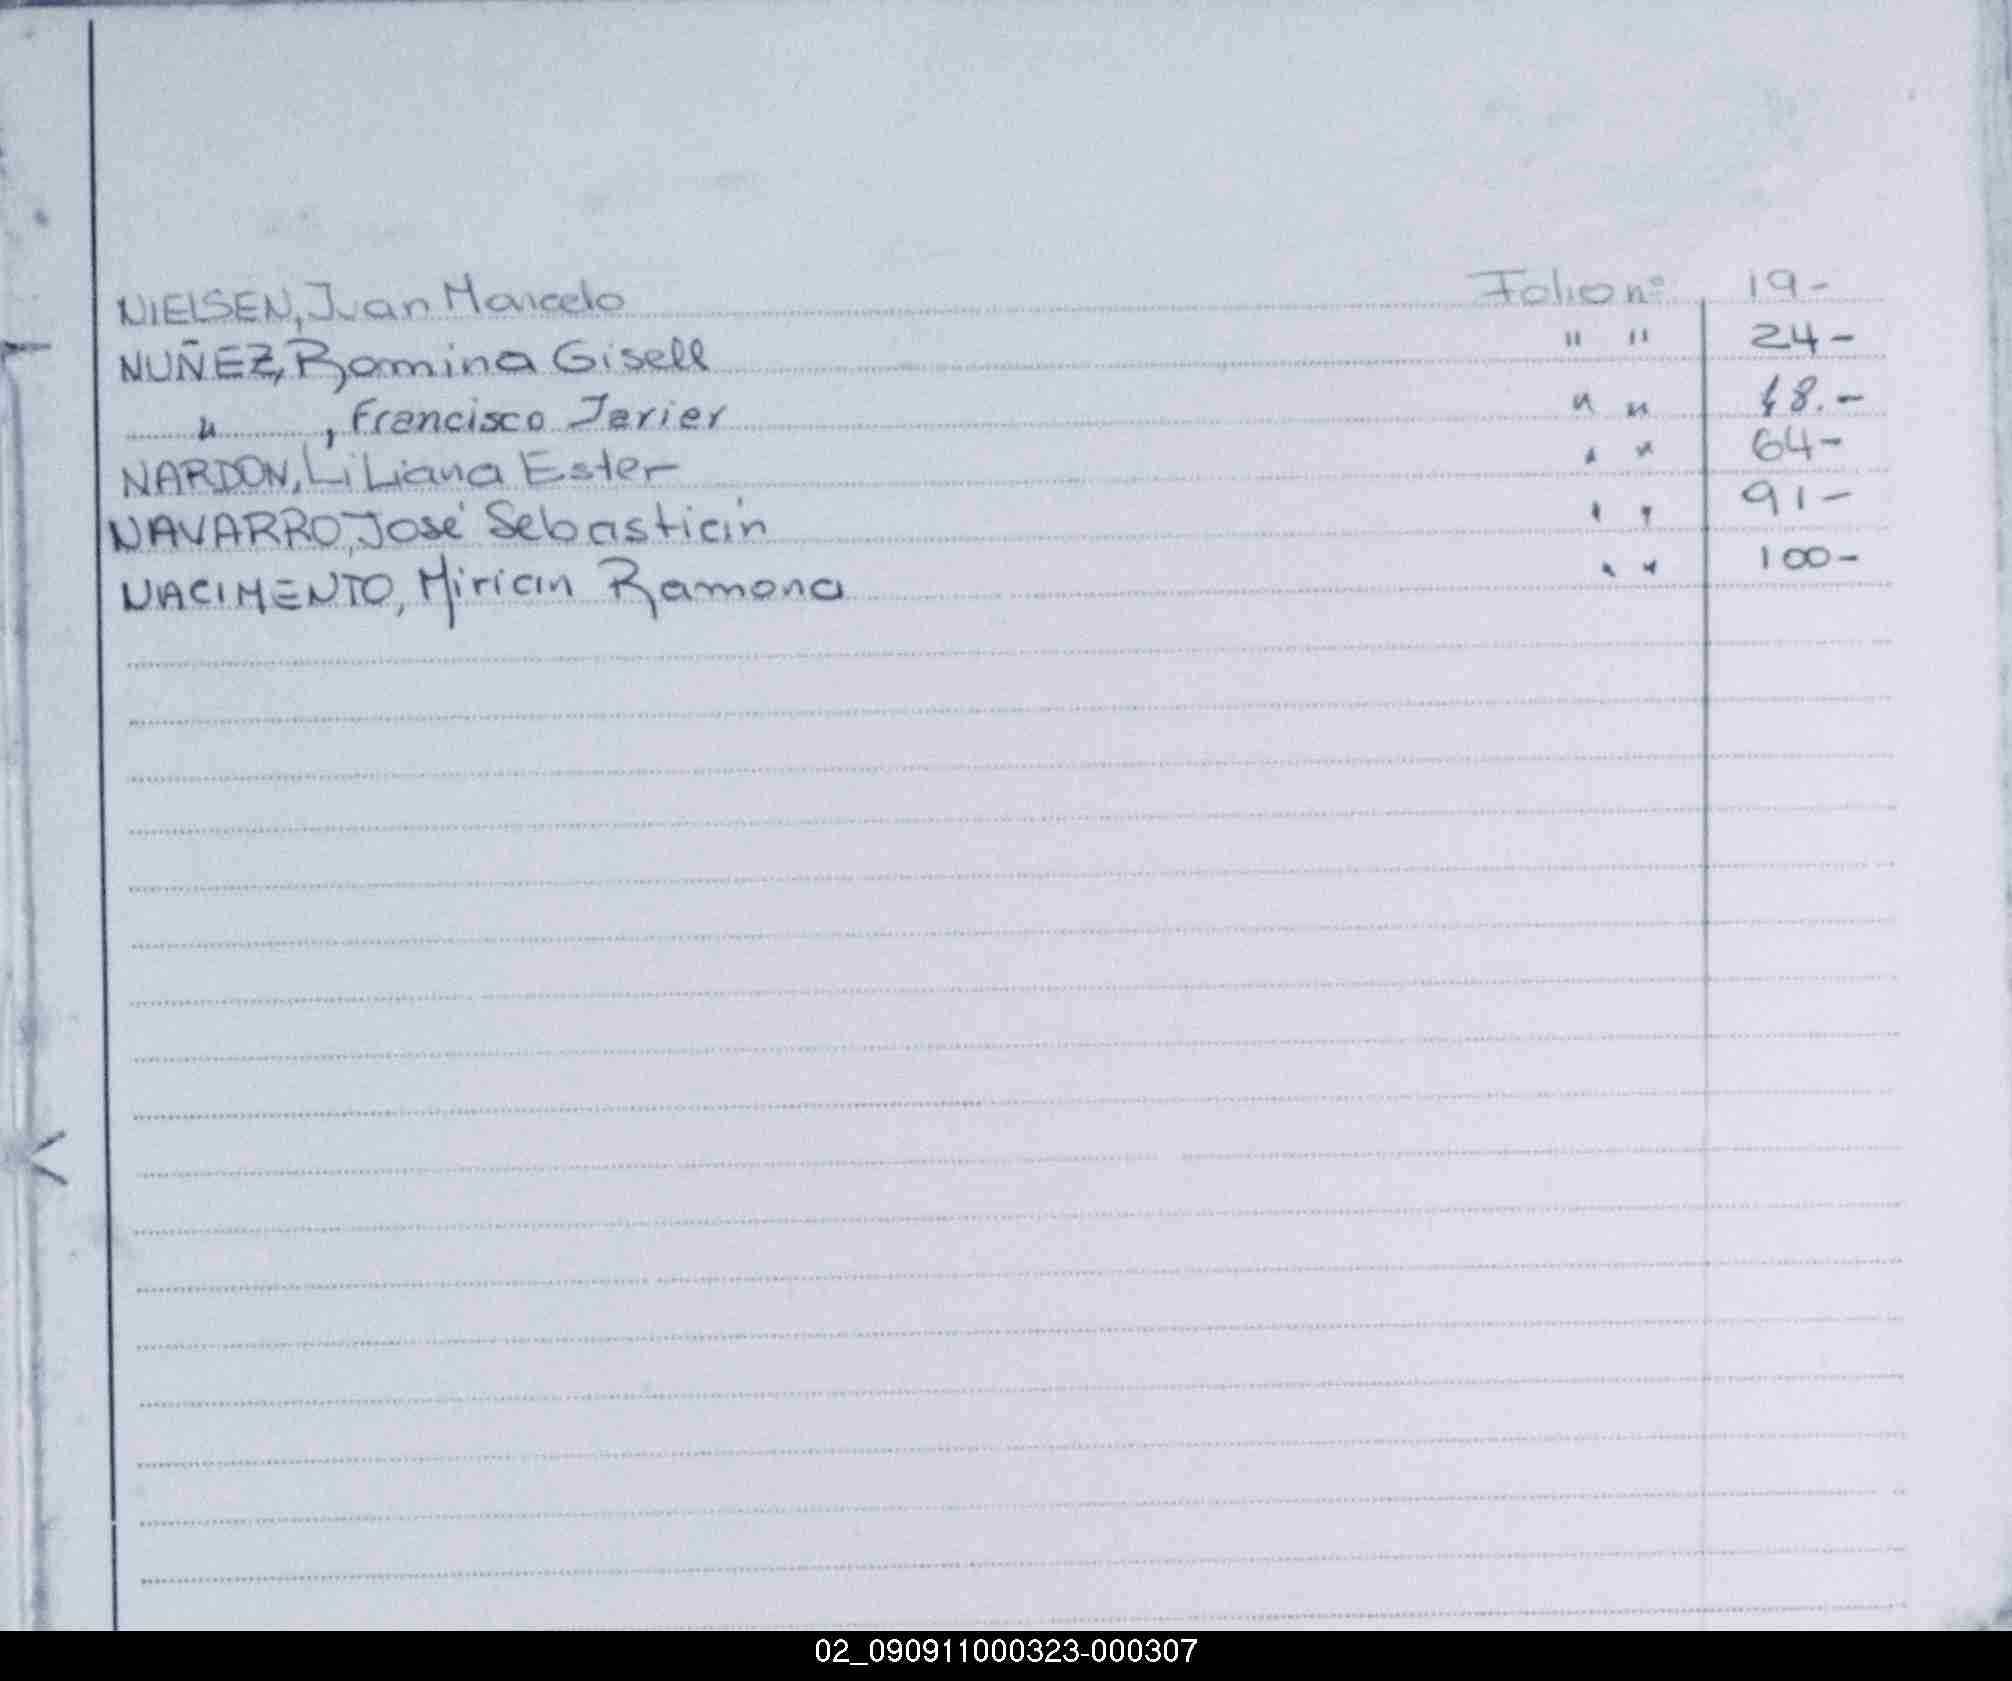 NIELSEN, Juan Marcelo Folio nº 19-
NUÑEZ, Romina Gisell " " 24-
" , Francisco Javier " " 48.-
NARDON, Liliana Ester " " 64-
NAVARRO, José Sebastián " " 91-
NACIMENTO, Mirian Ramona " " 100-
02_090911000323-000307